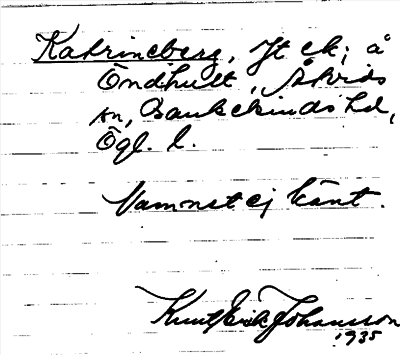 Katrineberg, Jt ek; å
Öndhult, Åtvids
sn, Bankekinds hd,
Ögl. l.
Namnet ej känt.
Knut Erik Johansson
1935